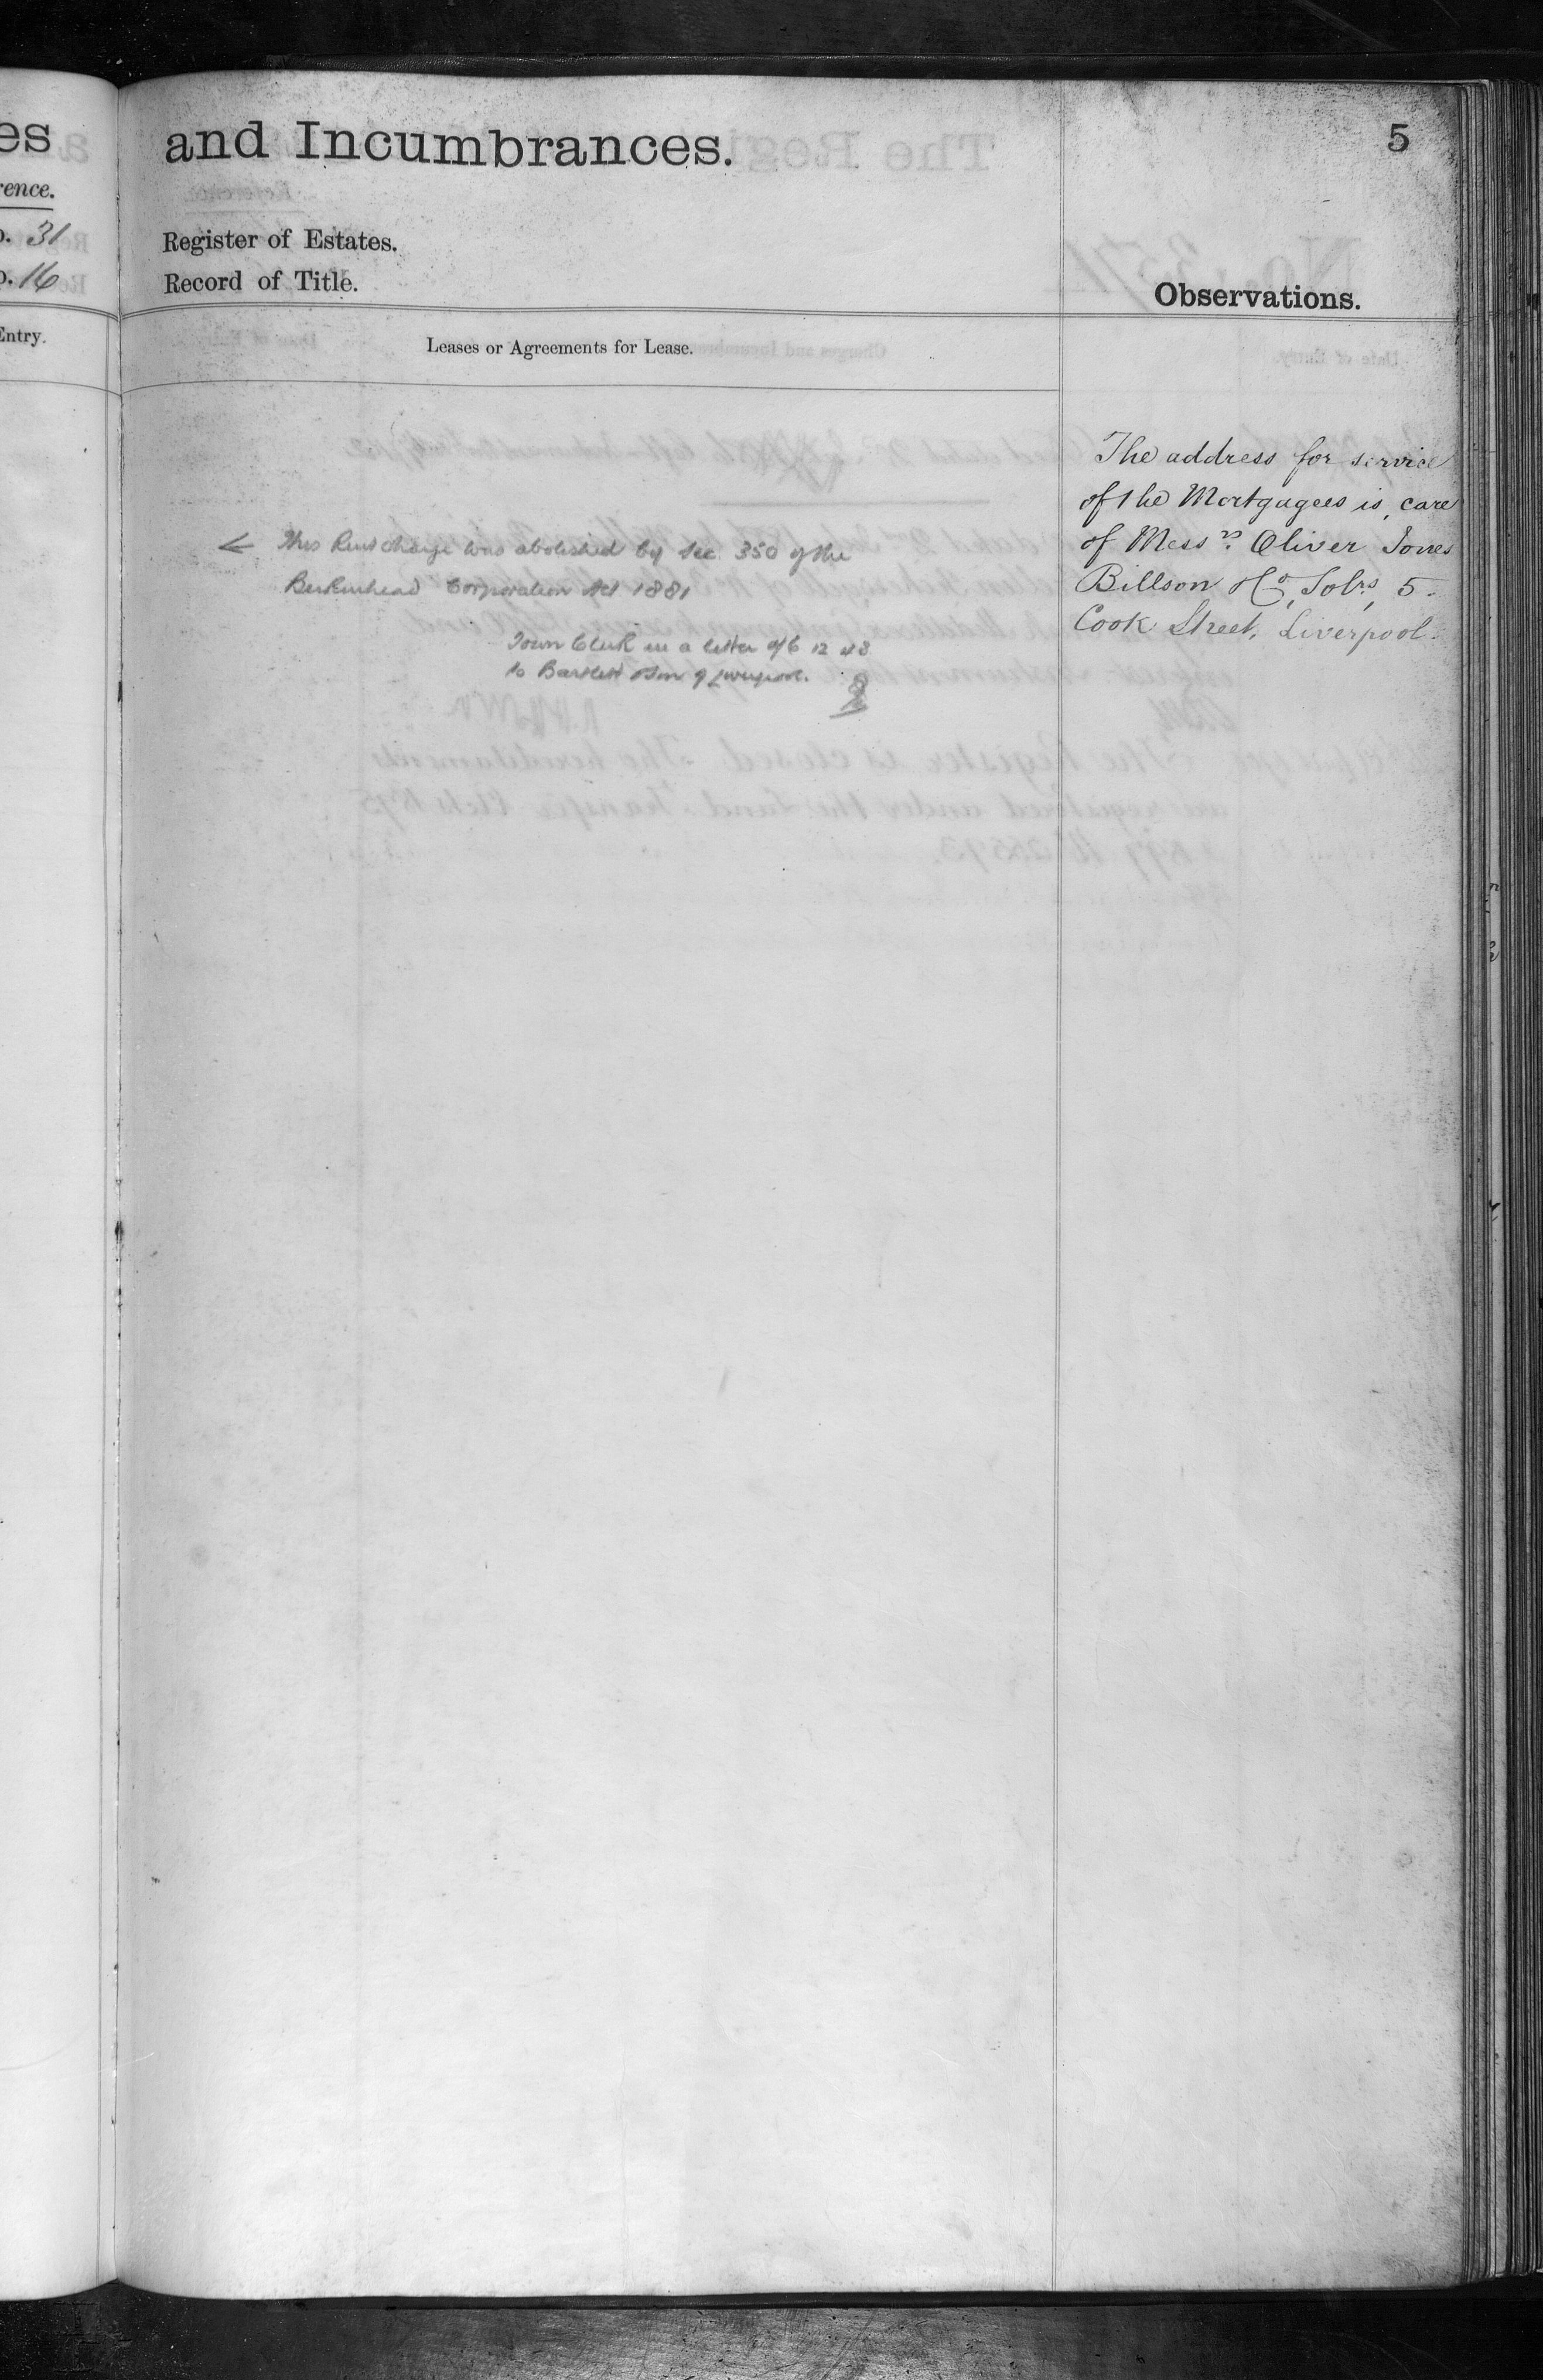 es
rence.
o. 31
o. 16
Entry.
and Incumbrances.
5
Register of Estates.
Record of Title.
Observations.
Leases or Agreements for Lease.
The address for service
of the Mortgagees is, care
of Mess rs. Oliver Jones
Billson & Co, Solrs, 5.
Cook Street, Liverpool.
← This Rent charge was abolished by Sec. 350 of the
Birkenhead Corporation Act 1881
Town Clerk in a letter of 6 12 43
to Bartlett & Son of Liverpool.